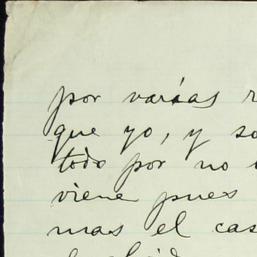 por varias
que yo, y
todo por no
viene pues
mas el